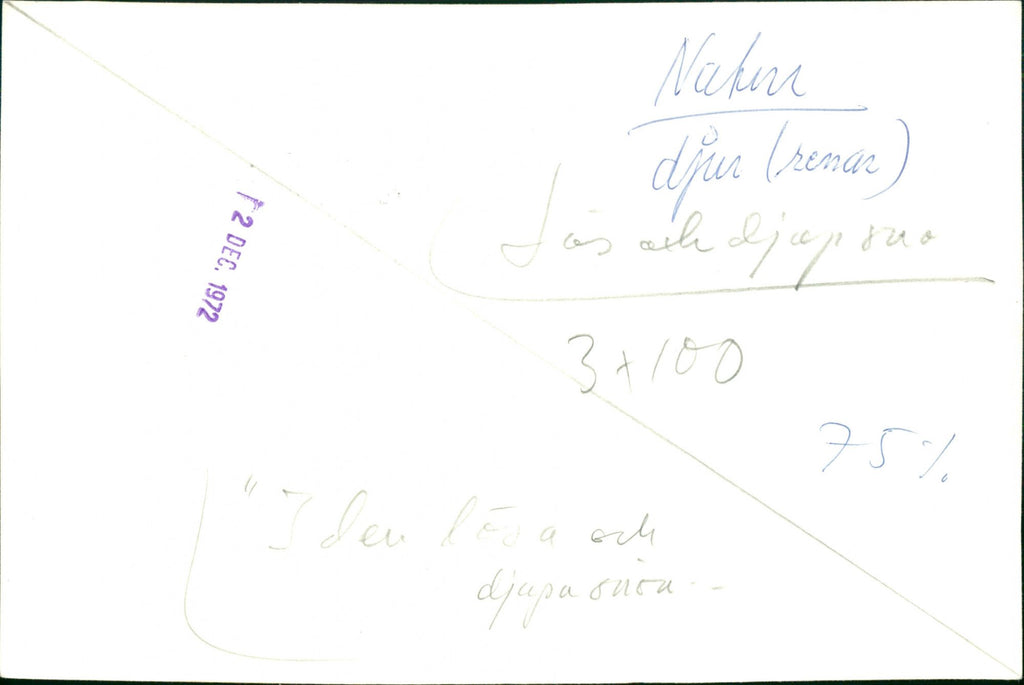 Natur
djur (renar)
Lös och djup snö
12 DEC. 1972
3 x 100
75%
"I den lösa och
djupa snön --